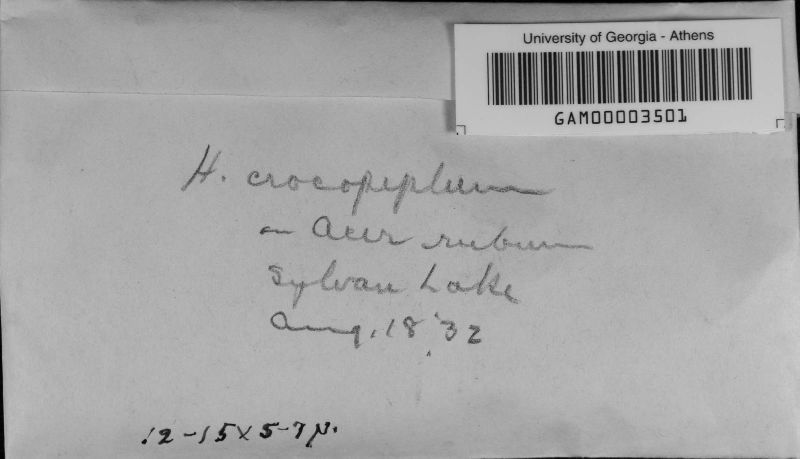 University of Georgia - Athens
GAM00003501
H. crocopeplum
on Acer rubrum
Sylvan Lake
Aug. 18 '32
12-15 x 5-7 µ.